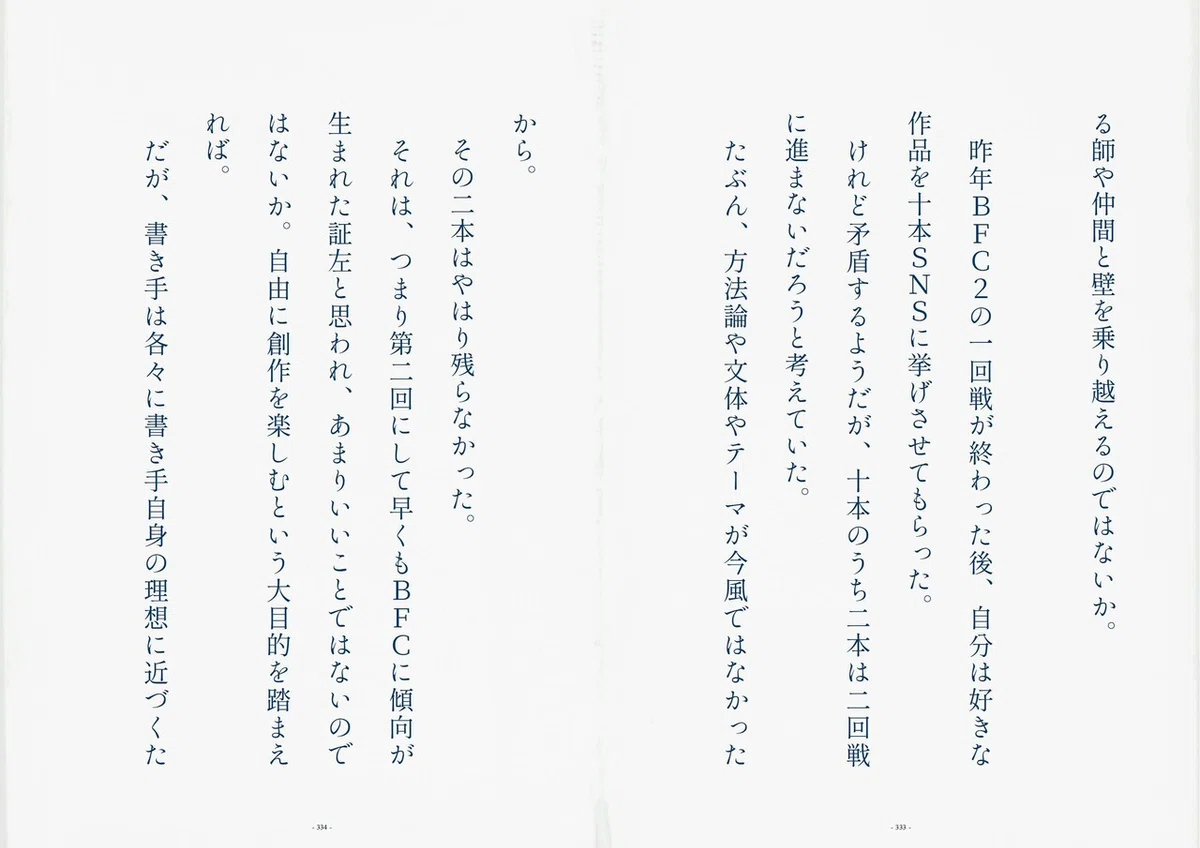 る師や仲間と壁を乗り越えるのではないか。
昨年BFC2の一回戦が終わった後、自分は好きな
作品を十本SNSに挙げさせてもらった。
けれど矛盾するようだが、十本のうち二本は二回戦
に進まないだろうと考えていた。
たぶん、方法論や文体やテーマが今風ではなかった
- 333 -
から。
その二本はやはり残らなかった。
それは、つまり第二回にして早くもBFCに傾向が
生まれた証左と思われ、あまりいいことではないので
はないか。自由に創作を楽しむという大目的を踏まえ
れば。
だが、書き手は各々に書き手自身の理想に近づくた
- 334 -